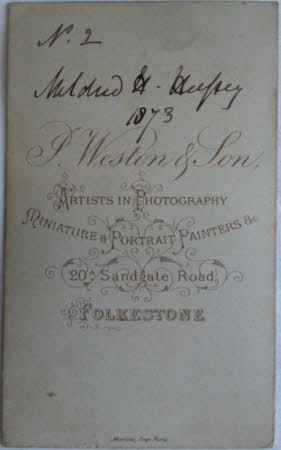 No. 2
Mildred H. Hussey
1873
J. Weston & Son,
ARTISTS IN PHOTOGRAPHY
MINIATURE & PORTRAIT PAINTERS &c
20A Sandgate Road,
FOLKESTONE
Marion, Imp. Paris